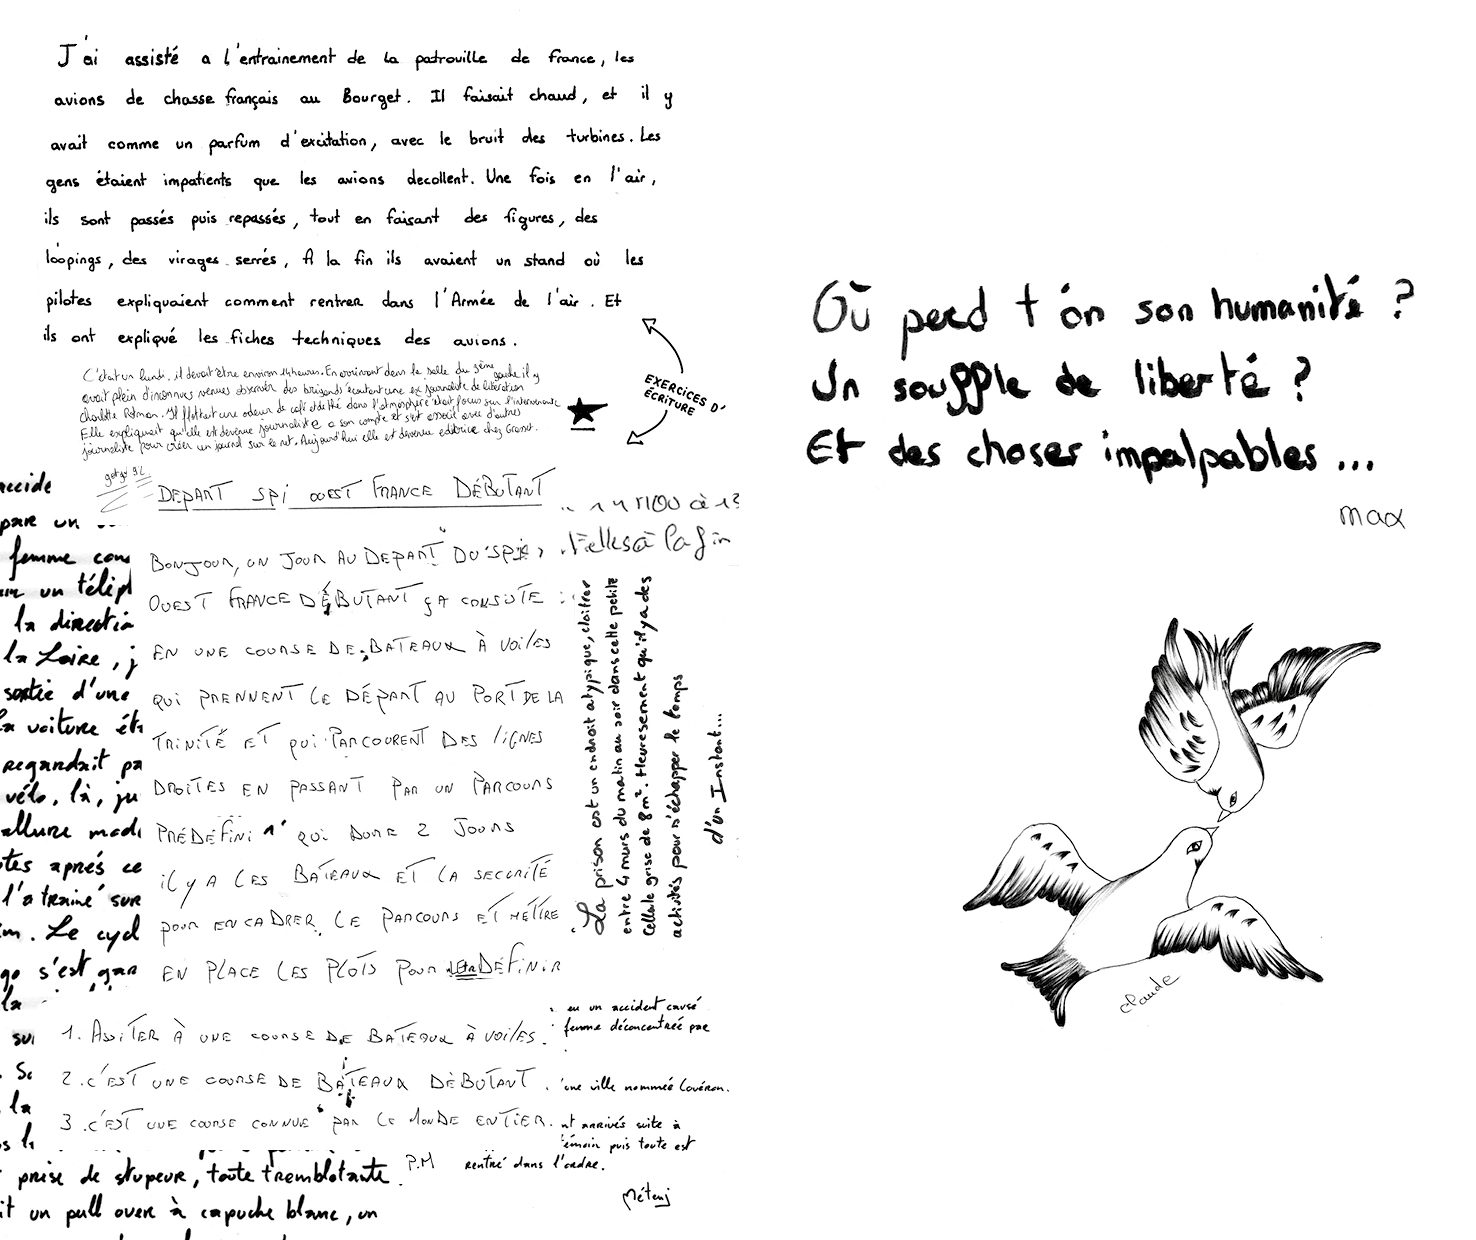 J'ai assisté a l'entrainement de la patrouille de france, les
avions de chasse français au Bourget. Il faisait chaud, et il y
avait comme un parfum d'excitation, avec le bruit des turbines. Les
gens étaient impatients que les avions decollent. Une fois en l'air,
ils sont passés puis repassés, tout en faisant des figures, des
loopings, des virages serrés, A la fin ils avaient un stand où les
pilotes expliquaient comment rentrer dans l'Armée de l'air. Et
ils ont expliqué les fiches techniques des avions.
C'était un lundi, il devait être environ 14 heures. En arrivant dans la salle du 3ème gauche il y
avait plein d'inconnus venues observer des brigands écoutent une ex journaliste de libération
Charlotte Rotman. Il flottait une odeur de café et de thé dans l'atmosphère était focus sur l'intervenante
Elle expliquait qu'elle est devenue journaliste a son compte et s'est associé avec d'autres
journaliste pour créer un journal sur le net. Aujourd'hui elle est devenue editrice chez Grasset.
EXERCICES D'
ÉCRITURE
DEPART SPI OUEST FRANCE DÉBUTANT
BONJOUR, UN JOUR AU DEPART DU SPI,
OUEST FRANCE DÉBUTANT ÇA CONSISTE
EN UNE COURSE DE BATEAUX À VOILES
QUI PRENNENT LE DÉPART AU PORT DE LA
TRINITÉ ET QUI PARCOURENT DES LIGNES
DROITES EN PASSANT PAR UN PARCOURS
PRÉDÉFINI QUI DURE 2 JOURS
IL Y A LES BATEAUX ET LA SECURITÉ
POUR ENCADRER LE PARCOURS ET METTRE
EN PLACE LES PLOTS POUR DÉFINIR
1. ASSITER À UNE COURSE DE BATEAUX À VOILES.
2. C'EST UNE COURSE DE BATEAUX DÉBUTANT.
3. C'EST UNE COURSE CONNUE PAR LE MONDE ENTIER.
P.M
La prison est un endroit atypique, cloitrer
entre 4 murs du matin au soir dans cette petite
Cellule grise de 8m². Heuresement qu'il y a des
activités pour s'échapper le temps
d'un Instant...
accide
pare un
femme con
un télép
la directi
la Loire, j
sortie d'une
la voiture ét
regardait pa
vélo, là, ju
allure mod
tes aprés ce
l'a trainé sur
Le cycl
go s'est gar
la
su
la
prise de stupeur, toute tremblotante.
it un pull over à capuche blanc, un
eu un accident causé
femme déconcentrée par
une ville nommée Couëron.
nt arrivés suite à
émoin puis toute est
rentré dans l'ordre.
Où perd t'on son humanité ?
Un souffle de liberté ?
Et des choses impalpables ...
Max
Claude